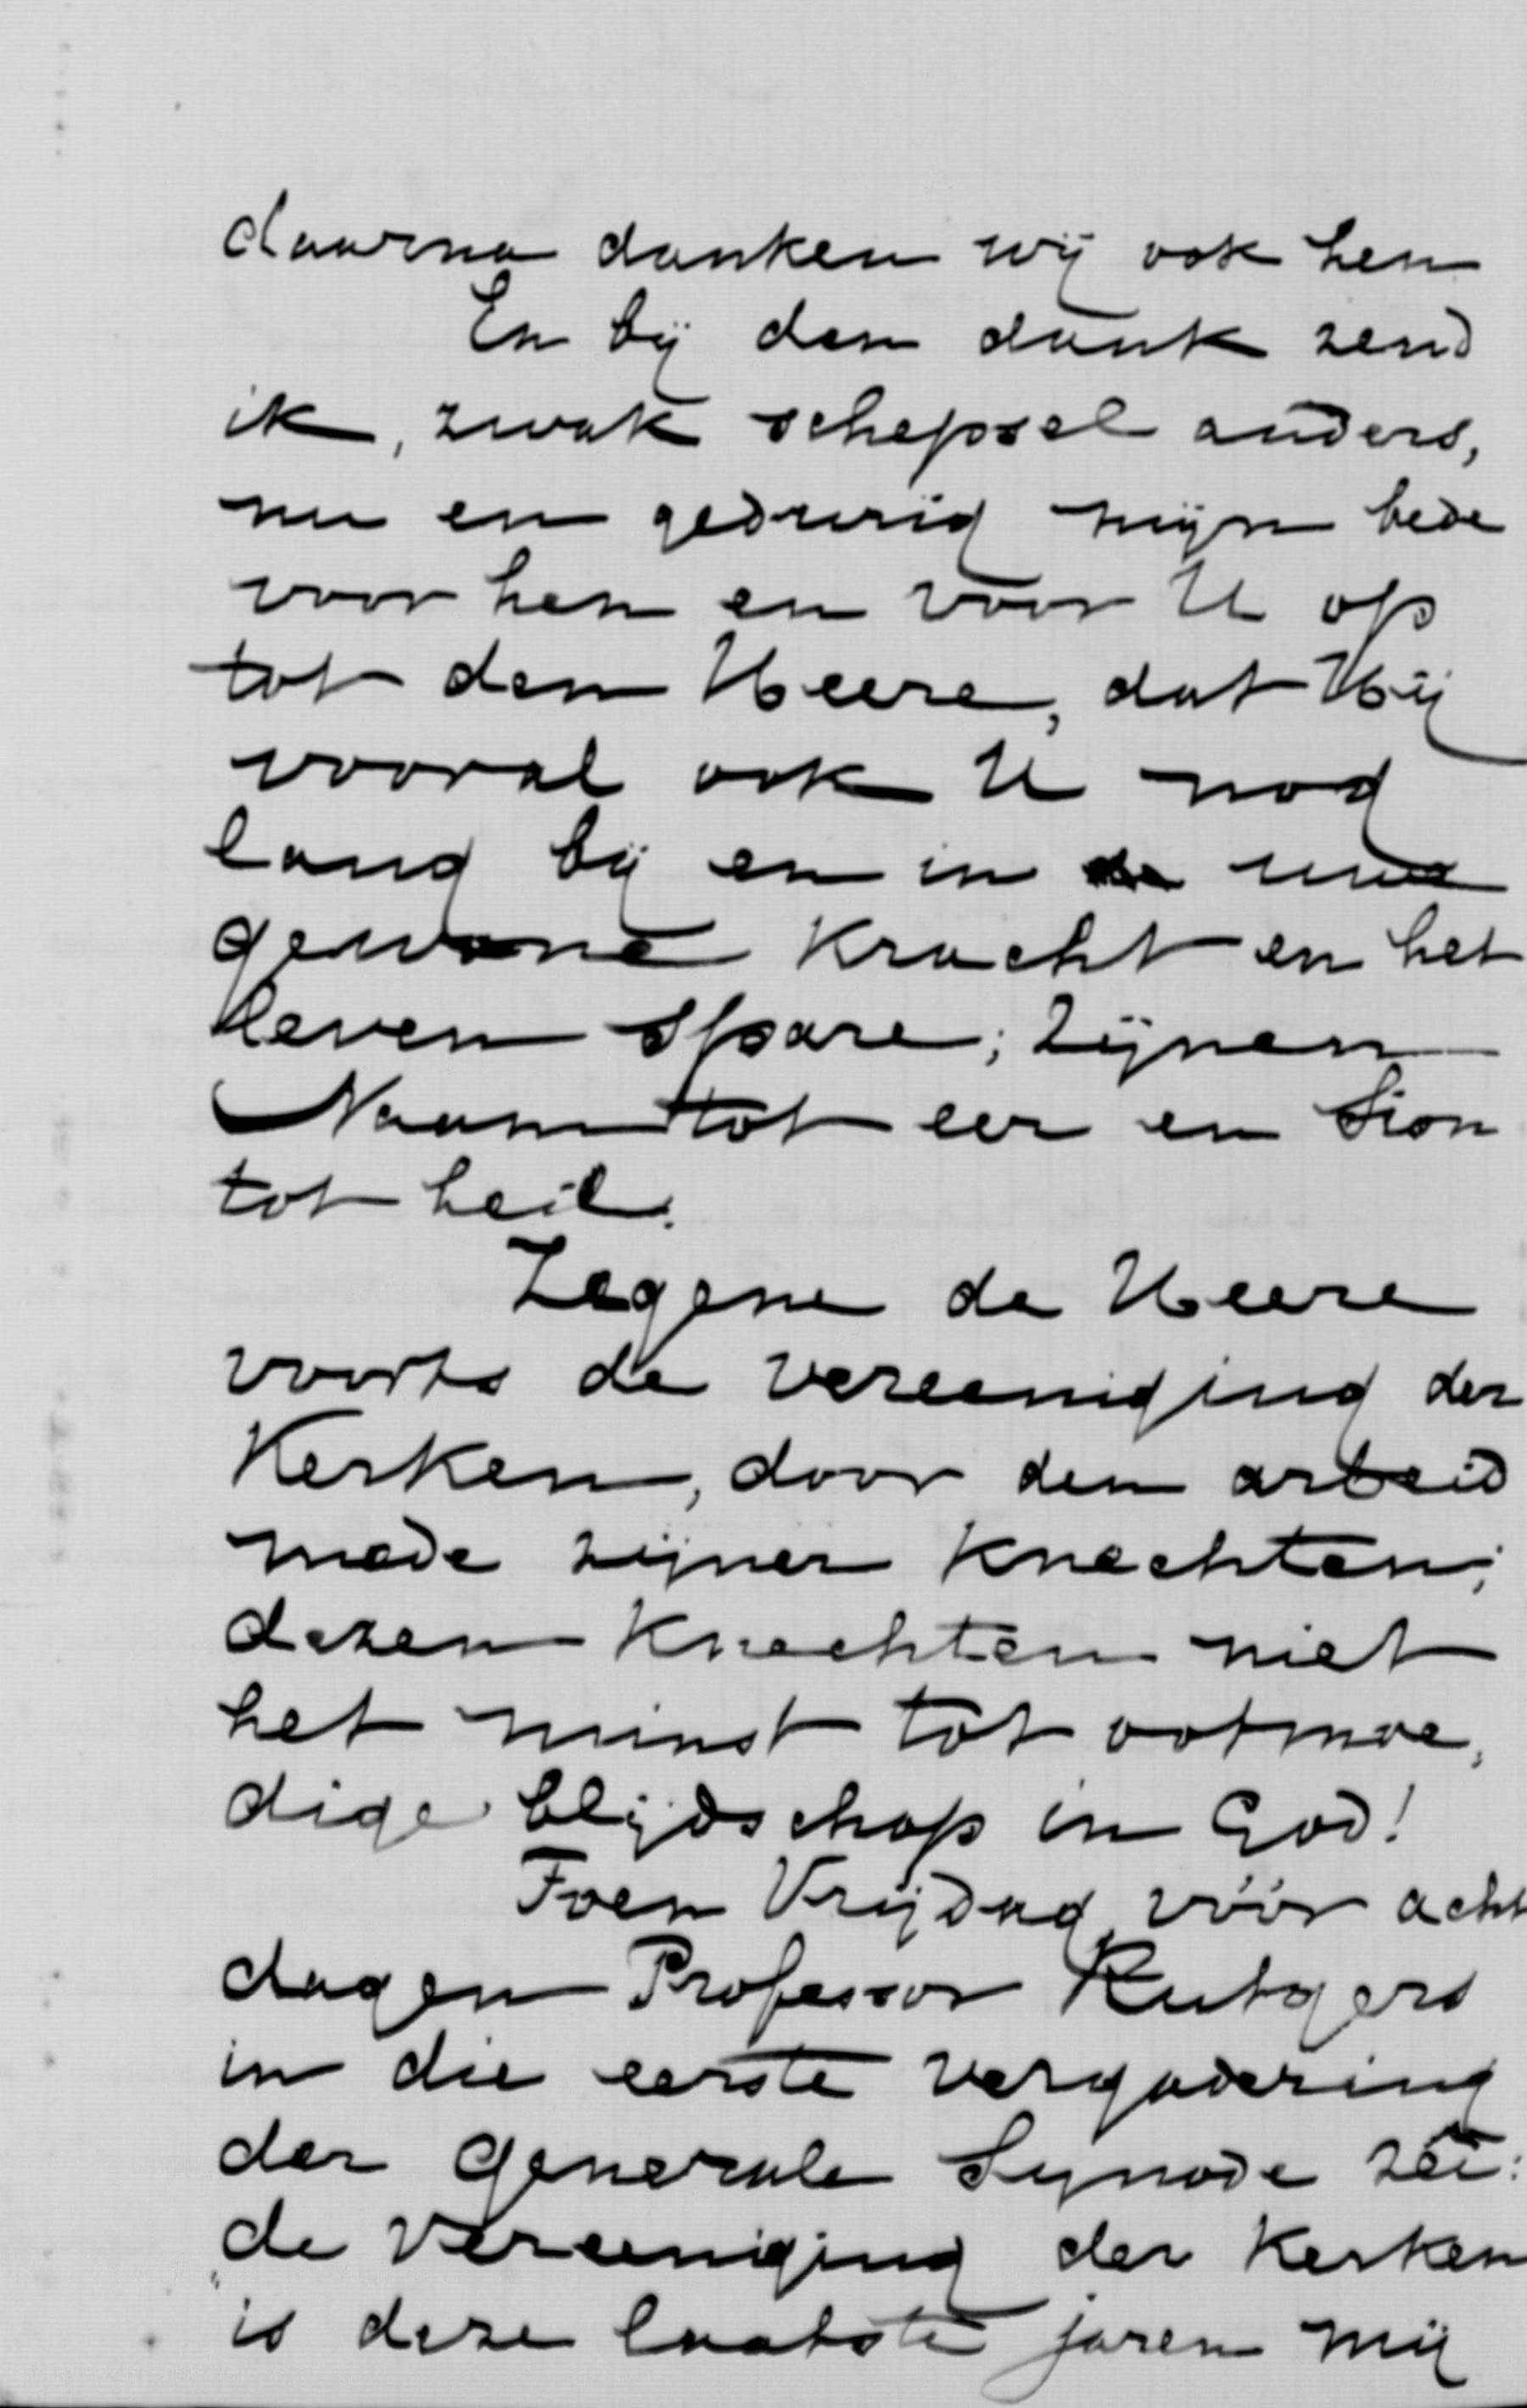 daarna danken wij ook hen
En bij den dank zend
ik, zwak schepsel anders,
nu en gedurig mijn bede
voor hen en voor U op
tot den Heere, dat Hij
vooral ook U nog
lang bij en in de
gewone kracht en het
leven spare; Zijnen
Naam tot eer en Sion
tot heil.
Zegene de Heere
voorts de vereeniging der
Kerken, door den arbeid
mede zijner knechten;
dezen knechten niet
het minst tot ootmoe„
dige blijdschap in God!
Toen Vrijdag vóór acht
dagen Professor Rutgers
in die eerste vergadering
der Generale Synode zei:
„de vereeniging der Kerken
is deze laatste jaren mij